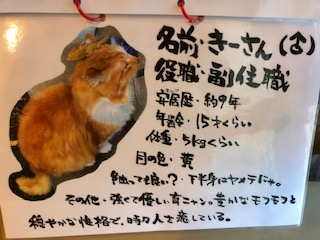 名前・きーさん(♂)
役職・副住職
安居歴・約9年
年齢・15才くらい
体重・5kgくらい
目の色・黄
触っても良い?・下半身はヤメテにゃ。
その他・強くて優しい育ニャン。豊かなモフモフと
穏やかな性格で、時々人を癒している。